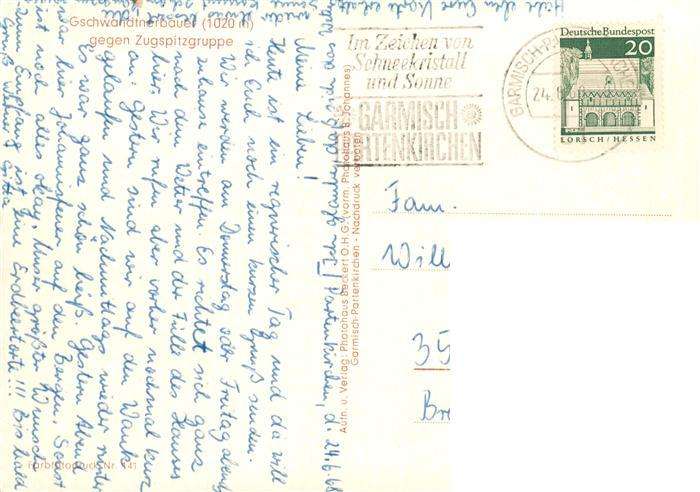 Gschwandtnerbauer (1020 m)
gegen Zugspitzgruppe
Im Zeichen von
Schneekristall
und Sonne
GARMISCH
PARTENKIRCHEN
GARMISCH-PARTENKIRCHEN
24.
Deutsche Bundespost
20
LORSCH/HESSEN
Fam.
Will
35
Br
Partenkirchen, d. 24.6.68
Meine Lieben!
Heute ist ein regnerischer Tag und da will
ich Euch noch einen kurzen Gruß senden.
Wir werden am Donnerstag oder Freitag abend
zuhause eintreffen. Es richtet sich ganz
nach dem Wetter und der Fülle des Hauses
hier. Wir rufen aber vorher nochmal kurz
an. Gestern sind wir auf den Wank
gelaufen und Nachmittags wieder runter
Es war ganz schön heiß. Gestern Abend
war hier Johannisfeuer auf den Bergen. Sonst
ist noch alles okay. Unser größter Wunsch
zum Empfang ist: Eine Erdbeertorte!!! Bis bald
Gruß
Aufn. u. Verlag: Photohaus Beckert O.H.G. (vorm. Photohaus B. Johannes)
Garmisch-Partenkirchen - Nachdruck verboten
Farbfotodruck Nr. 141